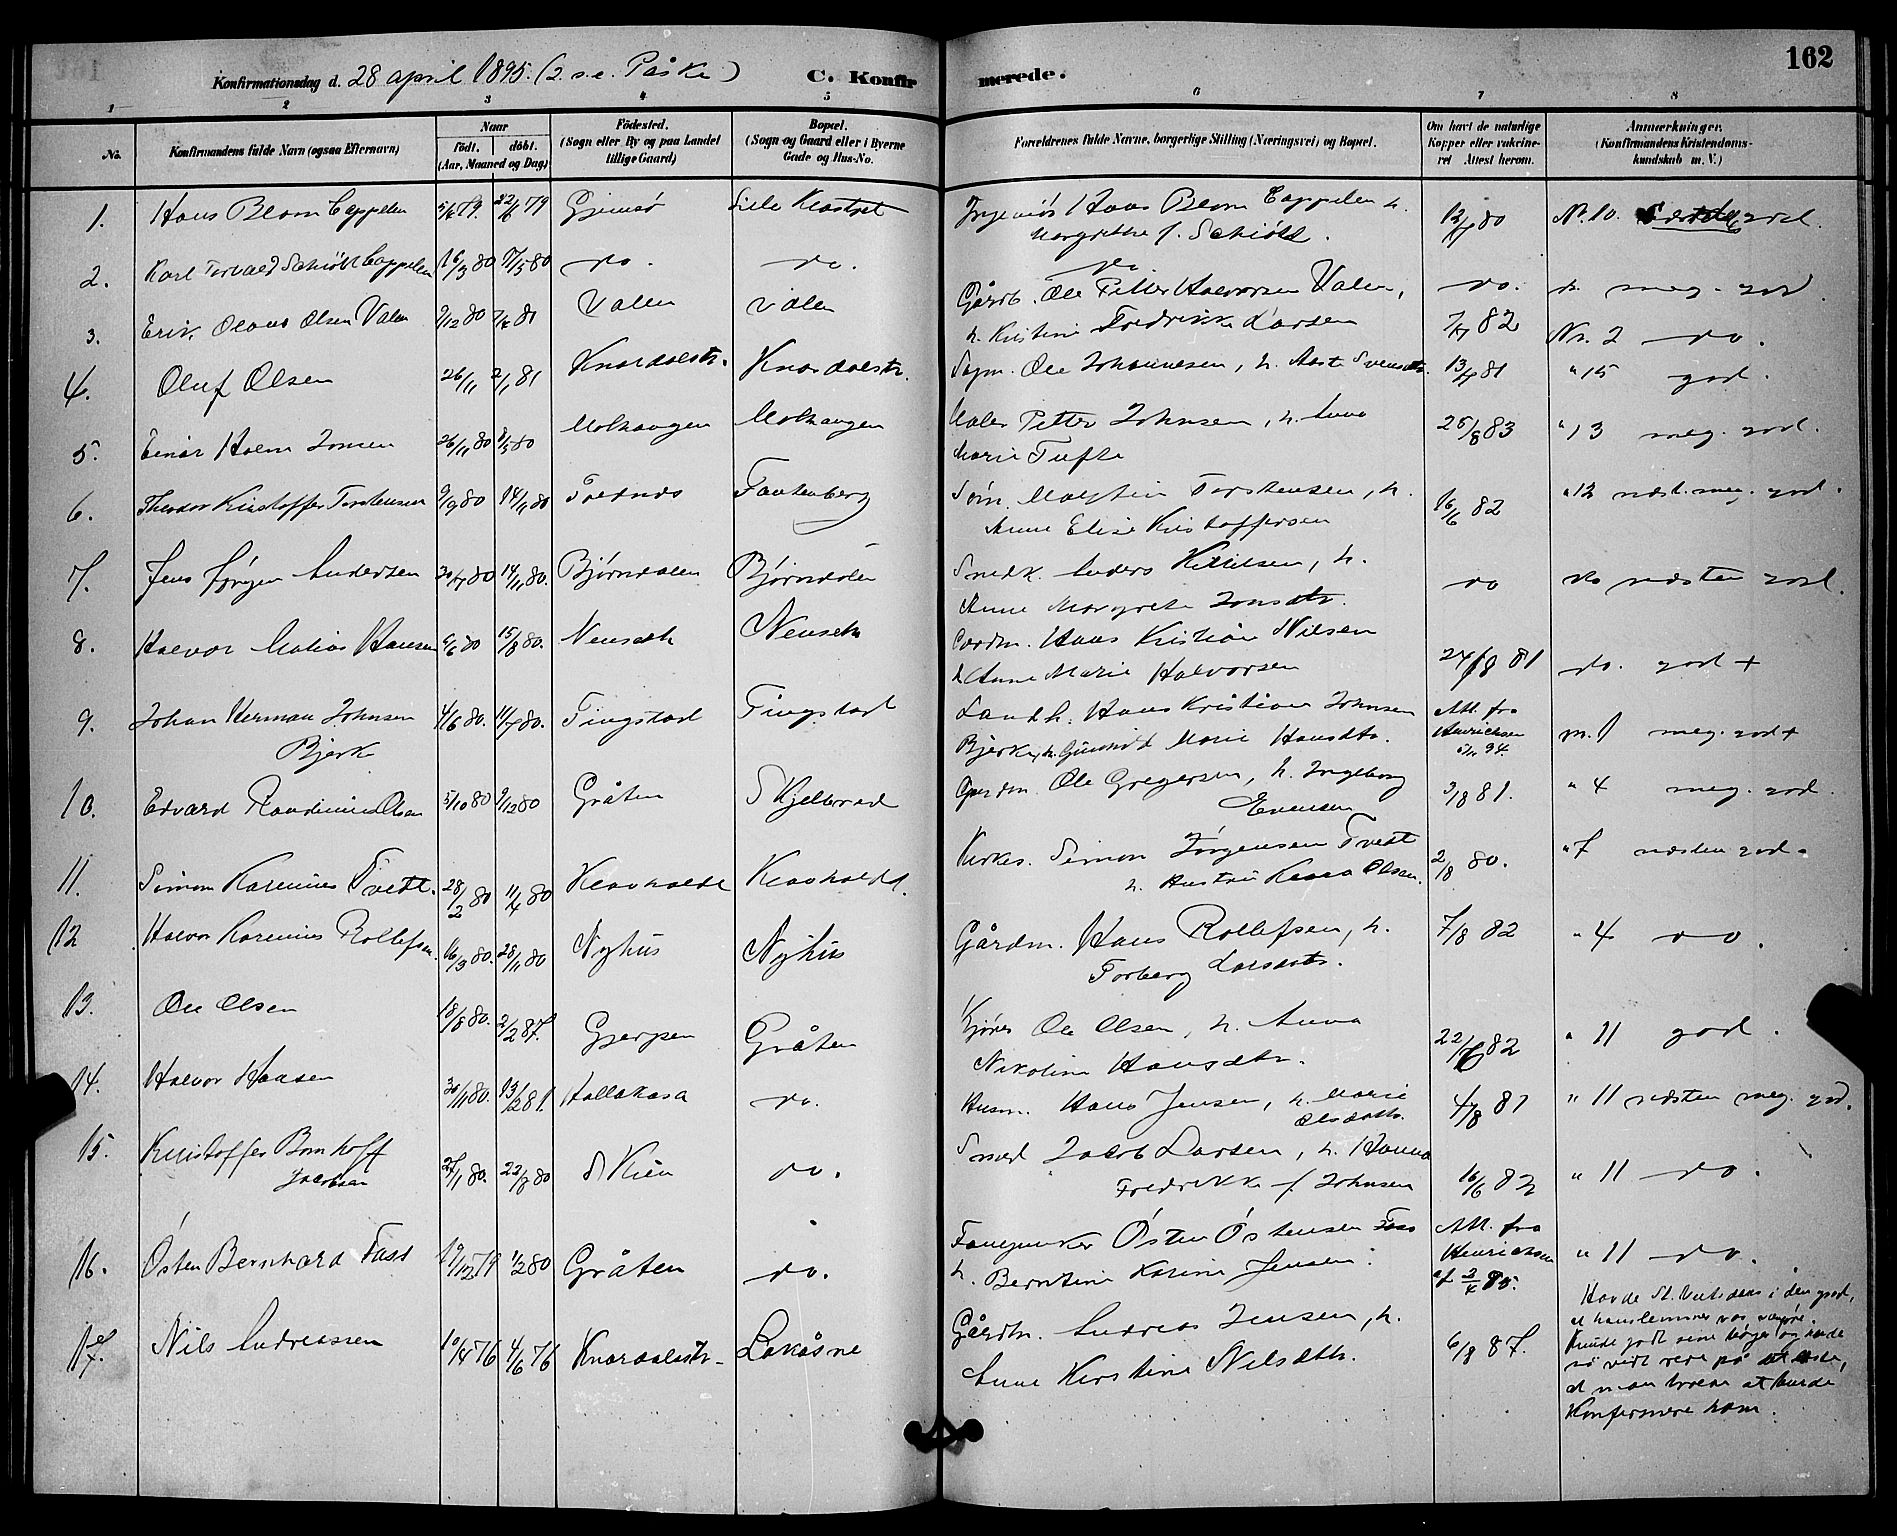 162
Konfirmationsdag d. 28 april 1895. (2. s. e. Påske) C. Konfirmerede.
1 2 3 4 5 6 7 8
No. Konfirmandens fulde Navn (ogsaa Efternavn) Naar født. døbt. (Aar, Maaned og Dag) Fødested. (Sogn eller By og paa Landet tillige Gaard) Bopæl. (Sogn og Gaard eller i Byerne Gade og Hus-No. Forældrenes fulde Navne, borgerlige Stilling (Næringsvei) og Bopæl. Om havt de naturlige Kopper eller vakcineret Attest herom. Anmærkninger. (Konfirmandens Kristendomskundskab m. V.)
1. Hans Blom Cappelen 79. 22/6 79 Gjemsø Ingeniør Hans Blom Cappelen h. 80 No. 10. god.
Margrethe f. Schiøtt.
2. Karl Torvald Schiøtt Cappelen 16/3 80 17/5 80 do. do. do. do. do. meg. god.
3. Erik Olaus Olsen Valen 9/12 80 81 Valen Valen Gårdb. Ole Petter Halvorsen Valen, 82 No. 2 do.
h. Kristine Fredrikke Larsen
4. Oluf Olsen 26/11 2/1 81 Knardalstr. Knardalstr. Sagm. Ole Johannesen, h. Aaste Svensdtr. 13/7 81 " 15 god.
5. Einar Holm Jonsen 26/11 80 80 Molhaugen Molhaugen Maler Petter Johnsen, h. Anna 25/8 83 " 13 meg. god.
Marie Tufte
6. Theodor Kristoffer Torstensen 9/9 80 14/11 80 Fantenberg Torstensen, h. 16/6 82 " 12 næst. meg. god.
Anne Elise Kristoffersen
7. Jens Jørgen Andersen 80 14/11 80. Bjørndalen Bjørndalen Snedk. Anders Kittilsen, h. do do næsten god.
Anne Margrete Jonsdtr.
8. Halvor Matias Hansen 80 15/8 80. Nenseth Nenseth Hans Kristian Nilsen 24/8 81 do. god +
h. Anne Marie Halvorsen
9. Johan Herman Johnsen 4/6 80. 11/7 80. Tingstad Tingstad Landh. Hans Kristian Johnsen Att. fra Henrichsen 94. m. 1 meg. god +
Bjerk Bjerk, h. Gunhild Marie Hansdtr.
10. Edvard Olsen 5/10 80 9/12 80 Gråten Skjelbred Ole Gregersen, h. Ingeborg 3/8 81. " 4 meg. god.
Evensen
11. Simon Karenius Tvedt. 28/2 80 11/4 80 Klovholdt Klovholdt. Kirkes. Simon Jørgensen Tvedt 2/8 80. " 7 næsten god.
h. Hustru Olsen.
12 Halvor Karenius Rollefsen. 16/3 80. 28/11 80 Nyhus Nyhus Gårdm. Hans Rollefsen, h. 7/8 82 " 4 do.
Torberg Larsdtr.
13. Ole Olsen 18/8 80. 2/2 87. Gjerpen Gråten Kjører Ole Olsen, h. Anna 82 " 11 god.
Nikoline Hansdtr.
14. Halvor Hansen 30/11 80. 13/2 81. Hollakasa do. Husm. Hans Jensen, h. Marie 4/8 81 " 11 næsten meg. god.
Olsdattr.
15. Kristoffer Bomhoff 27/1 80. 22/8 80 Skien do. Smed Jacob Larsen, h. Hanna 16/6 82 " 11 do.
Jacobsen Fredrikke f. Johnsen
16. Østen Bernhard Foss 19/12 79 1/2 80 Gråten do. Østen Østensen Foss Att. fra Henrichsen af 3/4 95. " 11 do.
h. Berntine Karine Jensen.
17. Nils Andreassen 10/4 76 4/6 76 Knardalstr. Lakåsne Gårdbr. Andreas Jensen, h. 6/8 87.
Anne Kirstine Nilsdtr.
Havde St. Veitsdans i den grad,
at hans lemmer var
Kunde godt sine bøger og havde
så vidt rede på
at man troede at burde
Konfirmere ham.